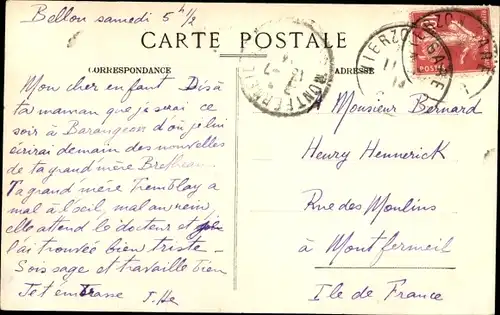 Bellon samedi 5 h 1/2
CARTE POSTALE
CORRESPONDANCE
ADRESSE
MONTFERMEIL
VIERZON GARE
VIERZON GARE
10
POSTES
Mon cher enfant Dis à
ta maman que je serai ce
soir à Barangeon d'où je lui
écrirai demain des nouvelles
de ta grand'mère
Ta grand'mère Tremblay a
mal à l'oeil, mal au rein
elle attend le docteur et je
l'ai trouvée bien triste -
Sois sage et travaille bien
Je t'embrasse
Monsieur Bernard
Henry Hennerick
Rue des Moulins
à Montfermeil
Ile de France